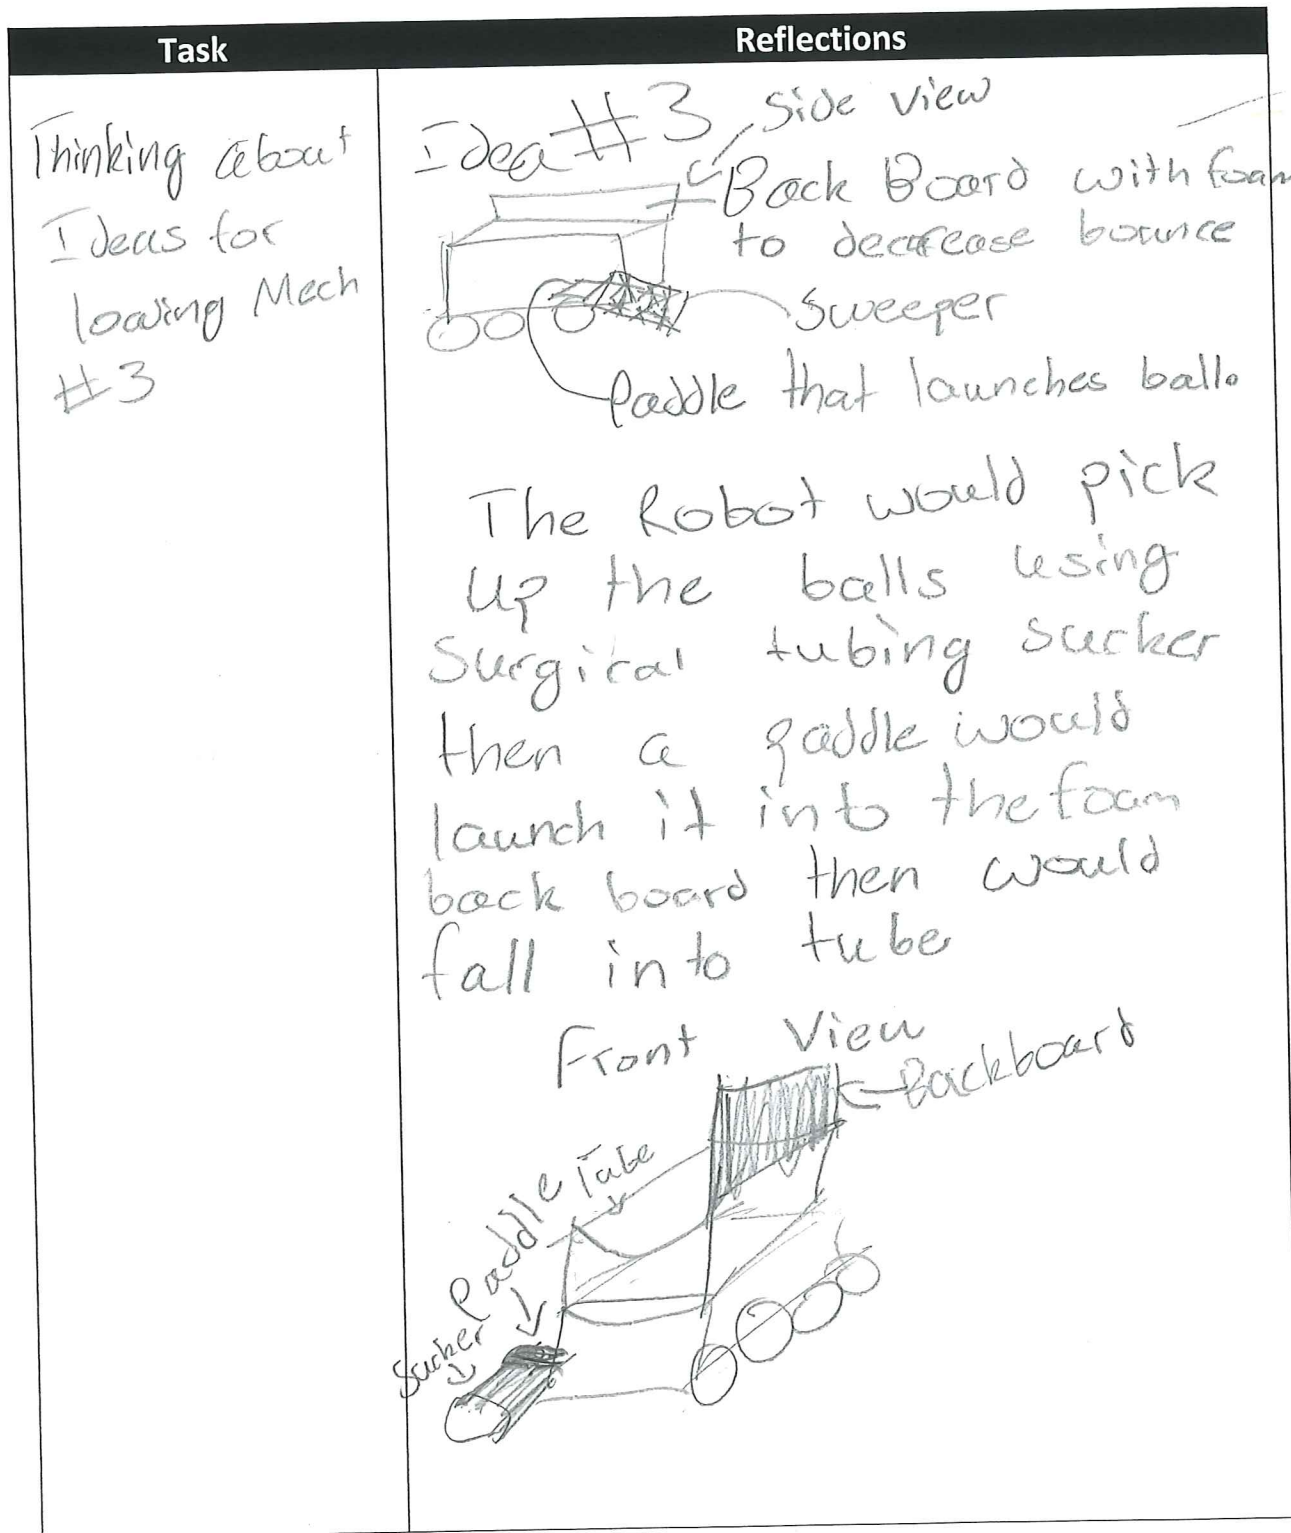 Task
Reflections
Thinking about
Ideas for
loading Mech
#3
Idea #3
Side view
Back Board with foam
to decrease bounce
Sweeper
Paddle that launches ball.
The Robot would pick
up the balls using
Surgical tubing sucker
then a paddle would
launch it into the foam
back board then would
fall into tube
Front View
Backboard
Tube
Paddle
Sucker